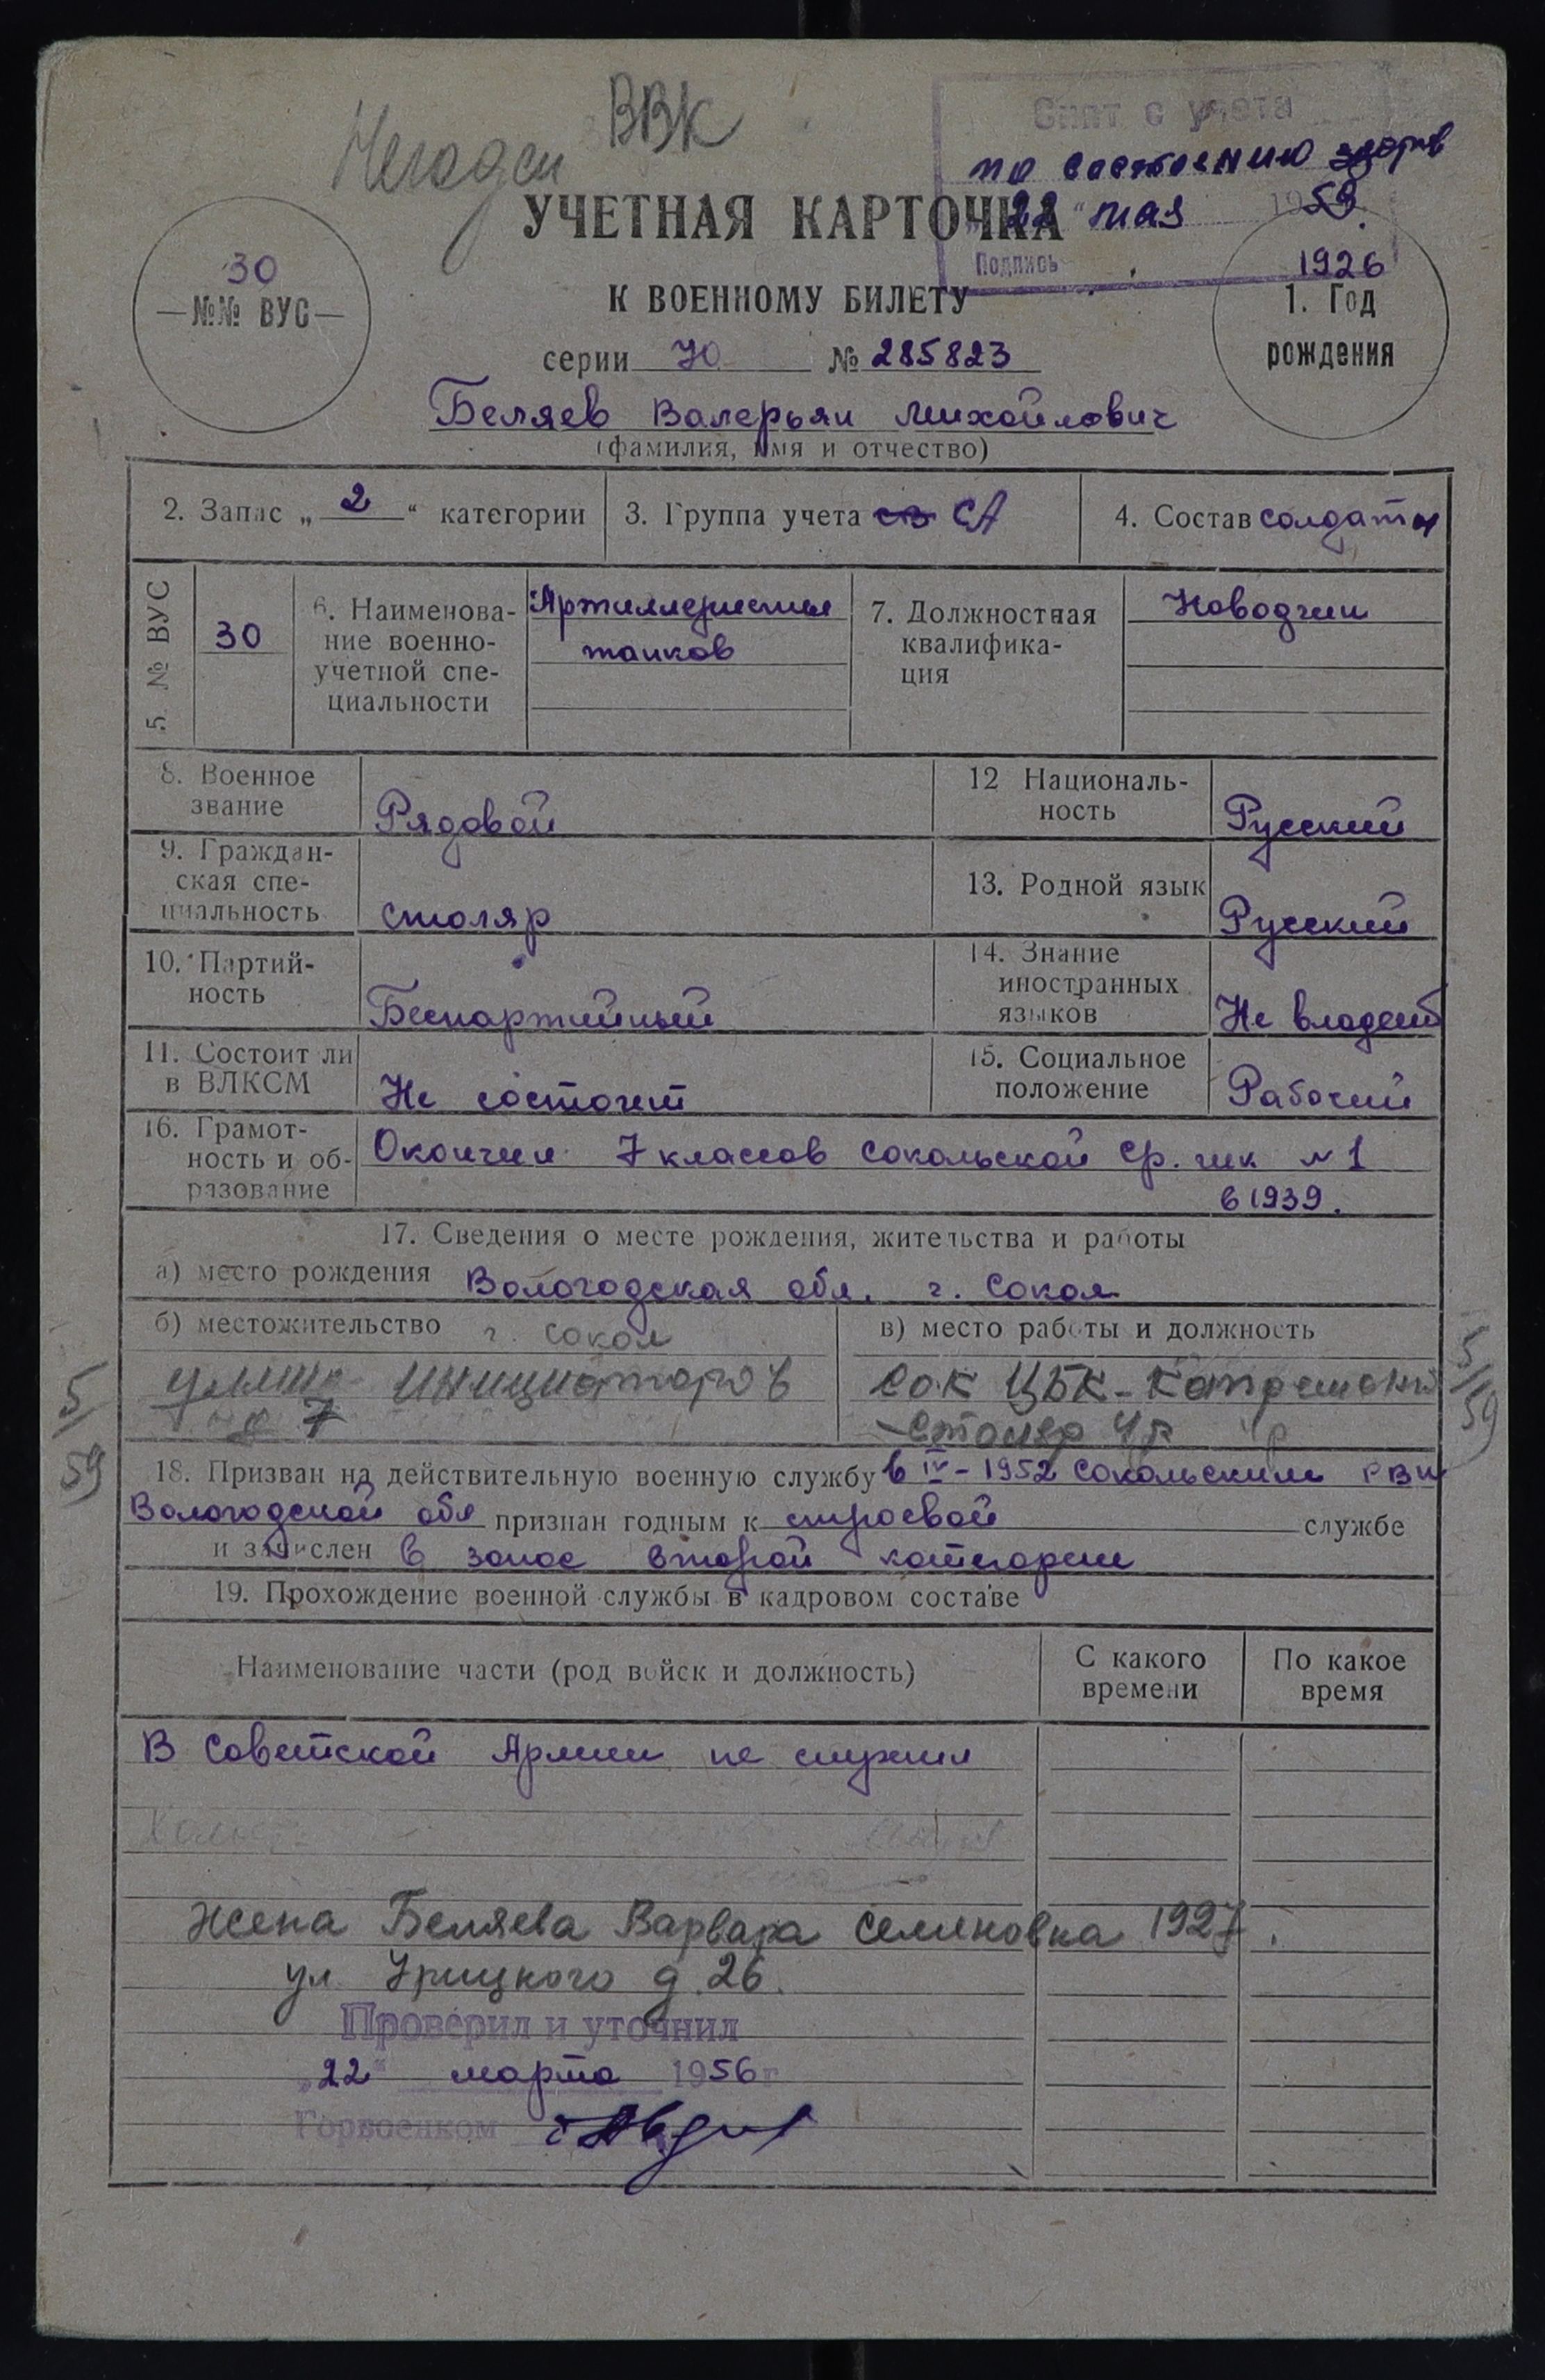 ВВК
Негоден
Снят с учета
по состоянию здоров
22 " мая 1959.
Подпись
УЧЕТНАЯ КАРТОЧКА
К ВОЕННОМУ БИЛЕТУ
30
№№ ВУС
1926
1. Год
рождения
серии № 285823
Беляев Валерьян Михайлович
(фамилия, имя и отчество)
2. Запас „ 2 “ категории
3. Группа учета СА
4. Состав солдаты
5. № ВУС
30
6. Наименова-
ние военно-
учетной спе-
циальности
Артиллеристы
танков
7. Должностная
квалифика-
ция
Наводчик
8. Военное
звание
Рядовой
12 Националь-
ность
Русский
9. Граждан-
ская спе-
циальность
столяр
13. Родной язык
Русский
10. Партий-
ность
Беспартийный
14. Знание
иностранных
языков
Не владеет
11. Состоит ли
в ВЛКСМ
Не состоит
15. Социальное
положение
Рабочий
16. Грамот-
ность и об-
разование
Окончил 7 классов Сокольской ср. шк №1
в 1939.
17. Сведения о месте рождения, жительства и работы
а) место рождения Вологодская обл. г. Сокол
б) местожительство г. Сокол
улица Инициаторов
7
в) место работы и должность
Сок ЦБК-
столяр 4р 4р
5/59
5/59
18. Призван на действительную военную службу в IV-1952 Сокольским РВК
Вологодской обл признан годным к строевой службе
и зачислен в запас второй категории
19. Прохождение военной службы в кадровом составе
Наименование части (род войск и должность)
С какого
времени
По какое
время
В Советской Армии не служил
Жена Беляева Варвара Семеновна 1927.
ул. Урицкого д. 26.
Проверил и уточнил
„22" марта 1956 г
Горвоенком